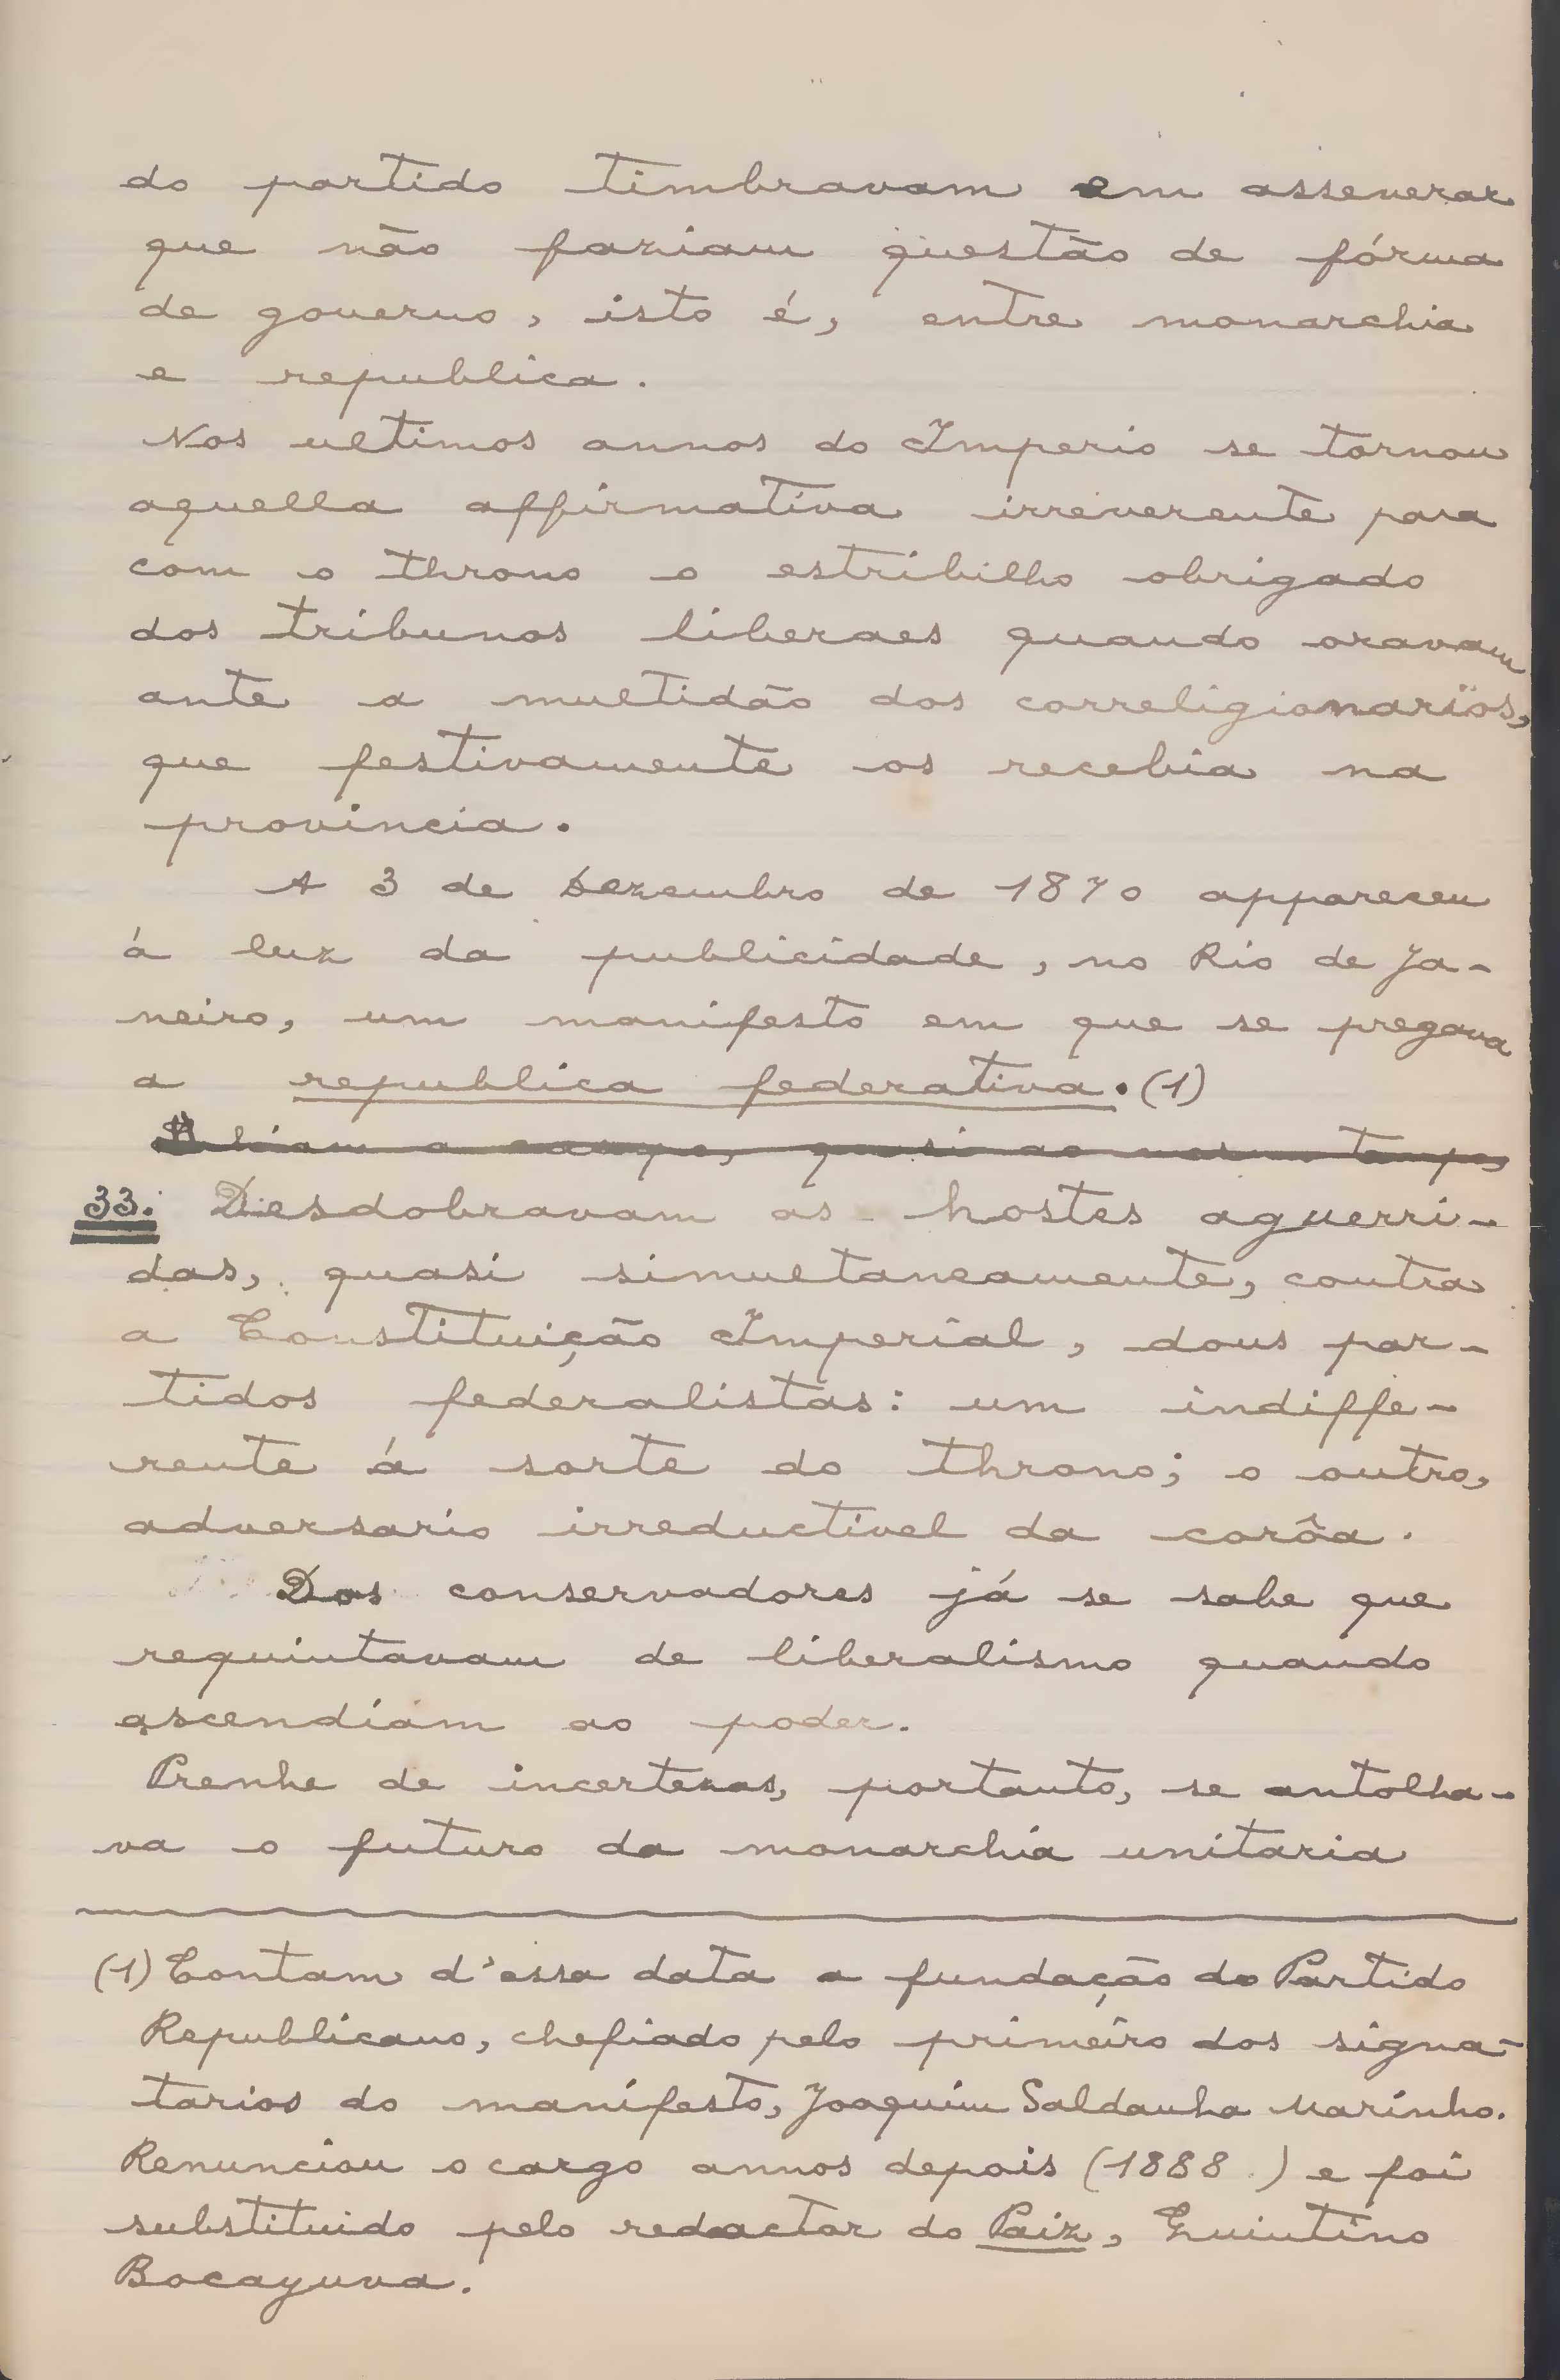 do partido timbravam em asseverar
que não faziam questão de fórma
de governo, isto é, entre monarchia
e republica.
Nos ultimos annos do Imperio se tornou
aquella affirmativa irreverente para
com o throno o estribilho obrigado
dos tribunos liberaes quando oravam
ante a multidão dos correligionarios,
que festivamente os recebia na
provincia.
A 3 de Dezembro de 1870 appareceu
á luz da publicidade, no Rio de Ja-
neiro, um manifesto em que se pregava
a republica federativa. (1)
a campo, quasi ao mesmo tempo,
33. Desdobravam as hostes aguerri-
das, quasi simultaneamente, contra
a Constituição Imperial, dous par-
tidos federalistas: um indiffe-
rente á sorte do throno; o outro,
adversario irreductivel da corôa.
Dos conservadores já se sabe que
requintavam de liberalismo quando
ascendiam ao poder.
Prenhe de incertezas, portanto, se antolha-
va o futuro da monarchia unitaria
(1) Contam d'essa data a fundação do Partido
Republicano, chefiado pelo primeiro dos signa-
tarios do manifesto, Joaquim Saldanha Marinho.
Renunciou o cargo annos depois (1888) e foi
substituido pelo redactor do Paiz, Quintino
Bocayuva.